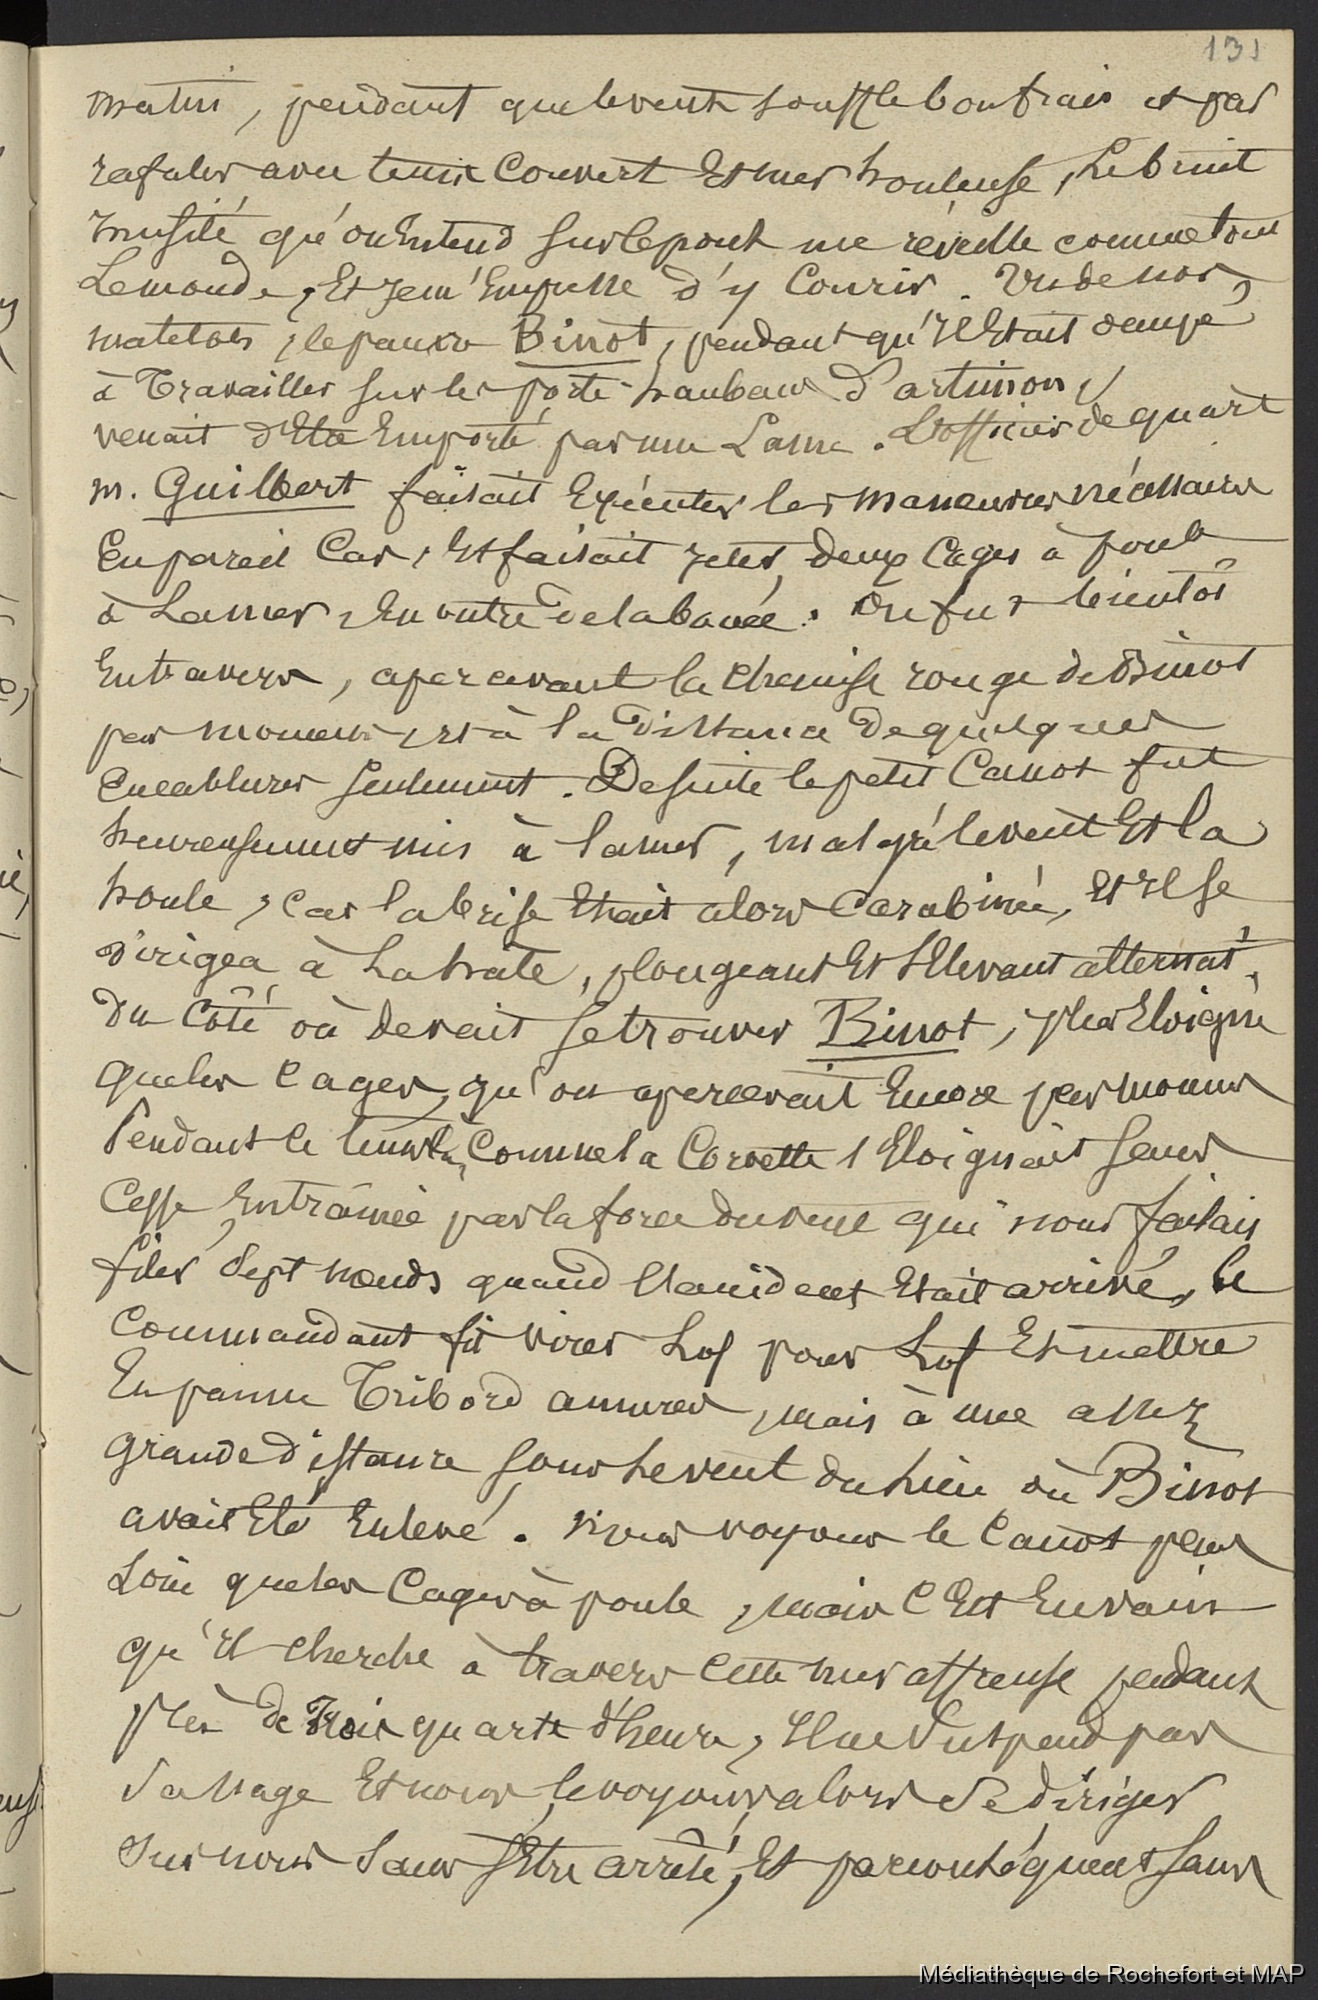 131
matin, pendant que le vent souffle bon frais et par
rafales avec tems couvert Et mer houleuse, Le bruit
inusité qu'on Entend sur le pont me réveille comme tout
Le monde, Et je m'Empresse d'y Courir. Un de nos
matelots, le pauvre Binot, pendant qu'Il Etait occupé
à Travailler sur les porte-haubans D'artimon,
venait d'Etre Emporté par une Lame. L'officier de quart
M. Guilbert faisait Exécuter les manœuvres nécessaires
En pareil Cas, Et faisait jeter deux Cages à poule
à La mer, En outre de la bouée. On fut bientôt
En travers, apercevant la chemise rouge de Binot
par momens, et à la Distance De quelques
Encablures seulement. De suite le petit Canot fut
heureusement mis à la mer, malgré le vent Et la
houle, car la brise Etait alors Carabinée, Et Il se
dirigea à La hâte, plongeant Et s'Elevant alternat.
Du Côté où devait se trouver Binot, plus Eloigné
que les Cages, qu'on apercevait Encore par momens
Pendant ce tems là, Comme la Corvette s'Eloignait sans
Cesse Entraînée par la force du vent qui nous faisait
filer Sept nœuds quand l'accident Etait arrivé, le
Commandant fit virer Lof pour Lof Et mettre
En panne Tribord amures, mais à une assez
grande distance sous le vent du lieu où Binot
avait Eté Enlevé. Nous voyons le Canot plus
Loin que les Cages à poule, mais C'Est En vain
qu'Il cherche à travers Cette mer affreuse pendant
près de Trois quarts d'heure, Il ne Suspend pas
Sa Nage Et nous le voyons alors Se diriger
Sur nous Sans s'Etre arrêté, Et par conséquent sans
Médiathèque de Rochefort et MAP